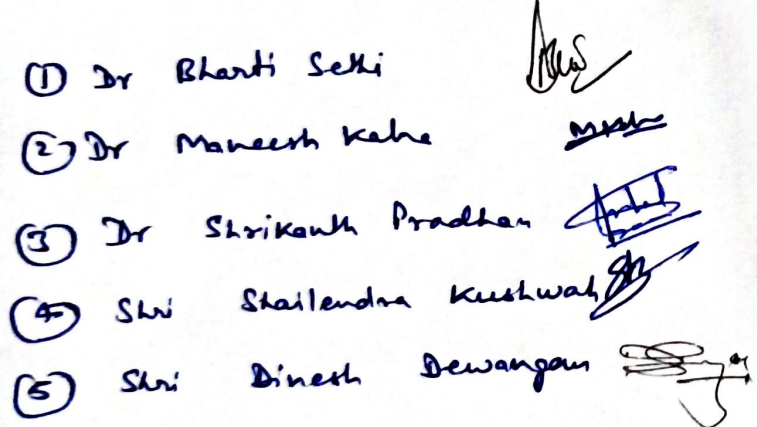 ① Dr Bharti Sethi
② Dr Maneesh Kahe
③ Dr Shrikanth Pradhan
④ Shri Shailendra Kushwah
⑤ Shri Dinesh Dewangan